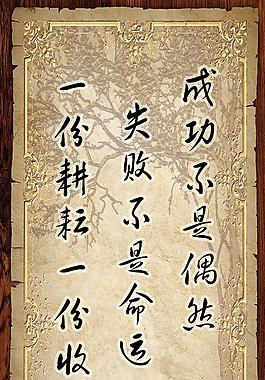 成功不是偶然
失败不是命运
一份耕耘一份收